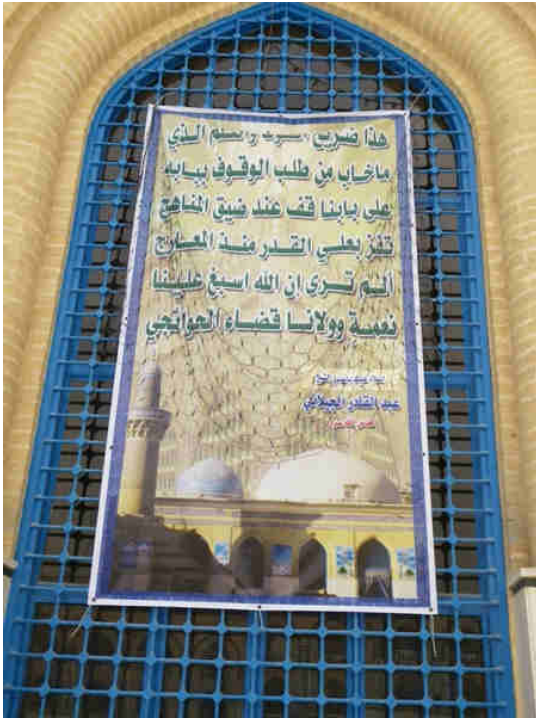 هذا ضريح السيد والسند الذي
ماخاب من طلب الوقوف ببابه
على بابنا قف عند ضيق المناهج
تفز بعلي القدر منذ المعارج
ألم ترى ان الله اسبغ علينا
نعمة وولانا قضاء الحوائجي
عبدالقادر الجيلاني